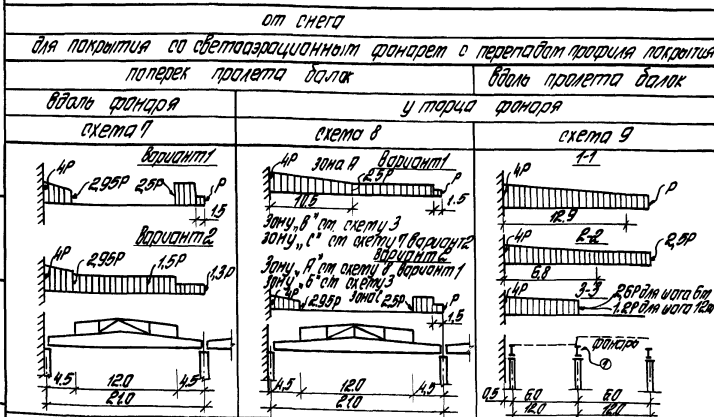 от снега
для покрытия со светоаэрационным фонарем с перепадом профиля покрытия
поперек пролета балок
вдоль пролета балок
вдоль фонаря
у торца фонаря
схема 7
схема 8
схема 9
вариант1
4Р
2,95Р
2,5Р
Р
1.5
вариант2
4Р
2,95Р
1,5Р
1,3Р
4.5
12.0
4.5
21.0
4Р
зона А
2,5Р
вариант1
Р
10.6
1.5
зону "В" от схему 3
зону "С" от схему 7 вариант2
вариант2
Зону "А" от схему 8 вариант 1
зону "Б" от схему 3
4Р
2,95Р
зона С
2,5Р
Р
1,5
4,5
12.0
4,5
21.0
1-1
4Р
Р
12.9
2-2
4Р
2,5Р
6,8
3-3
4Р
2,6Р для шага 6м
1.2Р для шага 12м
фонарь
1
0,5
6.0
6.0
12.0
12.0